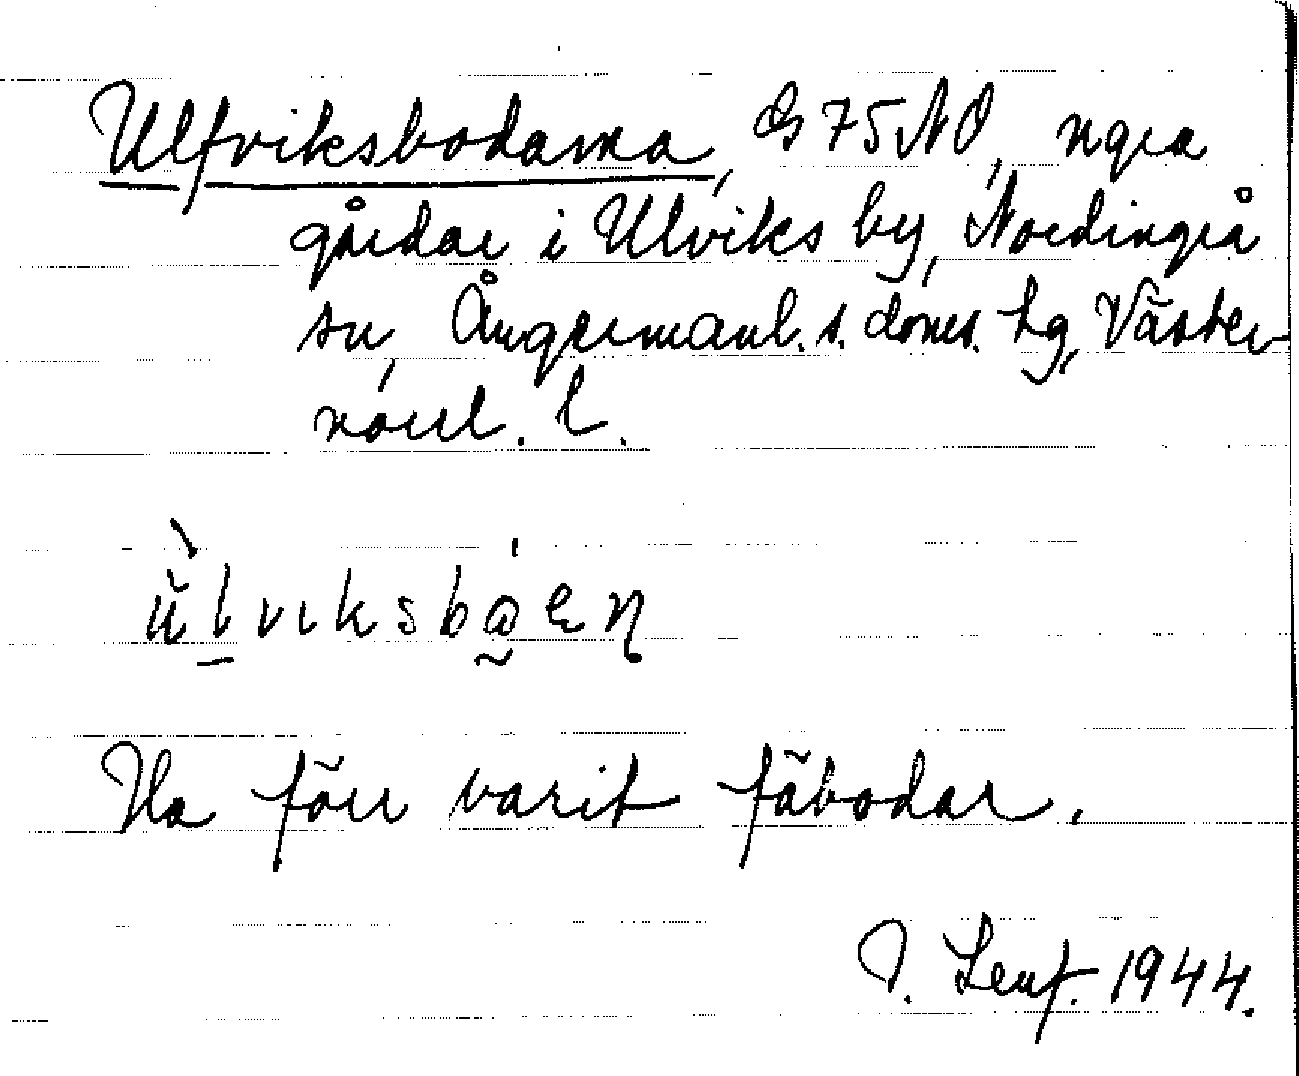 Ulfviksbodarna, G 75 NO, ngra
gårdar i Ulviks by, Nordingrå
sn, Ångermanl. s. doms. tg, Väster
norrl. l.
ùlvıksbɷɛɳ
Ha förr varit fäbodar.
J. Lenf. 1944.